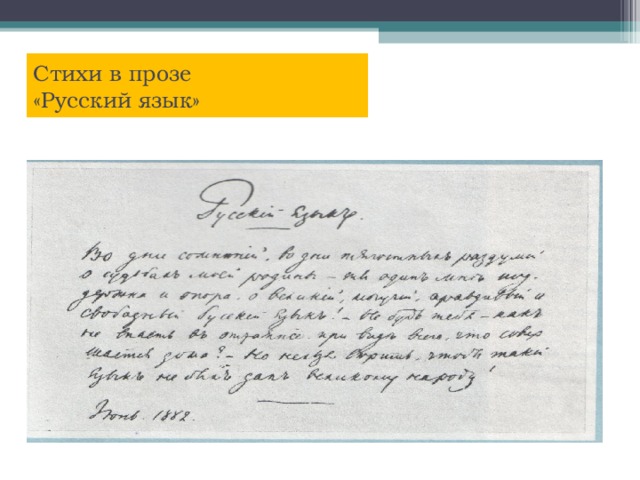 Стихи в прозе
«Русский язык»
Русскiй языкъ.
Во дни сомнѣнiй, во дни тягостныхъ раздумiй
о судьбахъ моей родины – ты одинъ мнѣ под-
держка и опора, о великiй, могучiй, правдивый и
свободный Русскiй языкъ! – Не будь тебя – какъ
не впасть въ отчаянiе при видѣ всего, что совер
шается дома? – Но нельзя вѣрить, чтобы такой
языкъ не былъ данъ великому народу!
Iюнь. 1882.